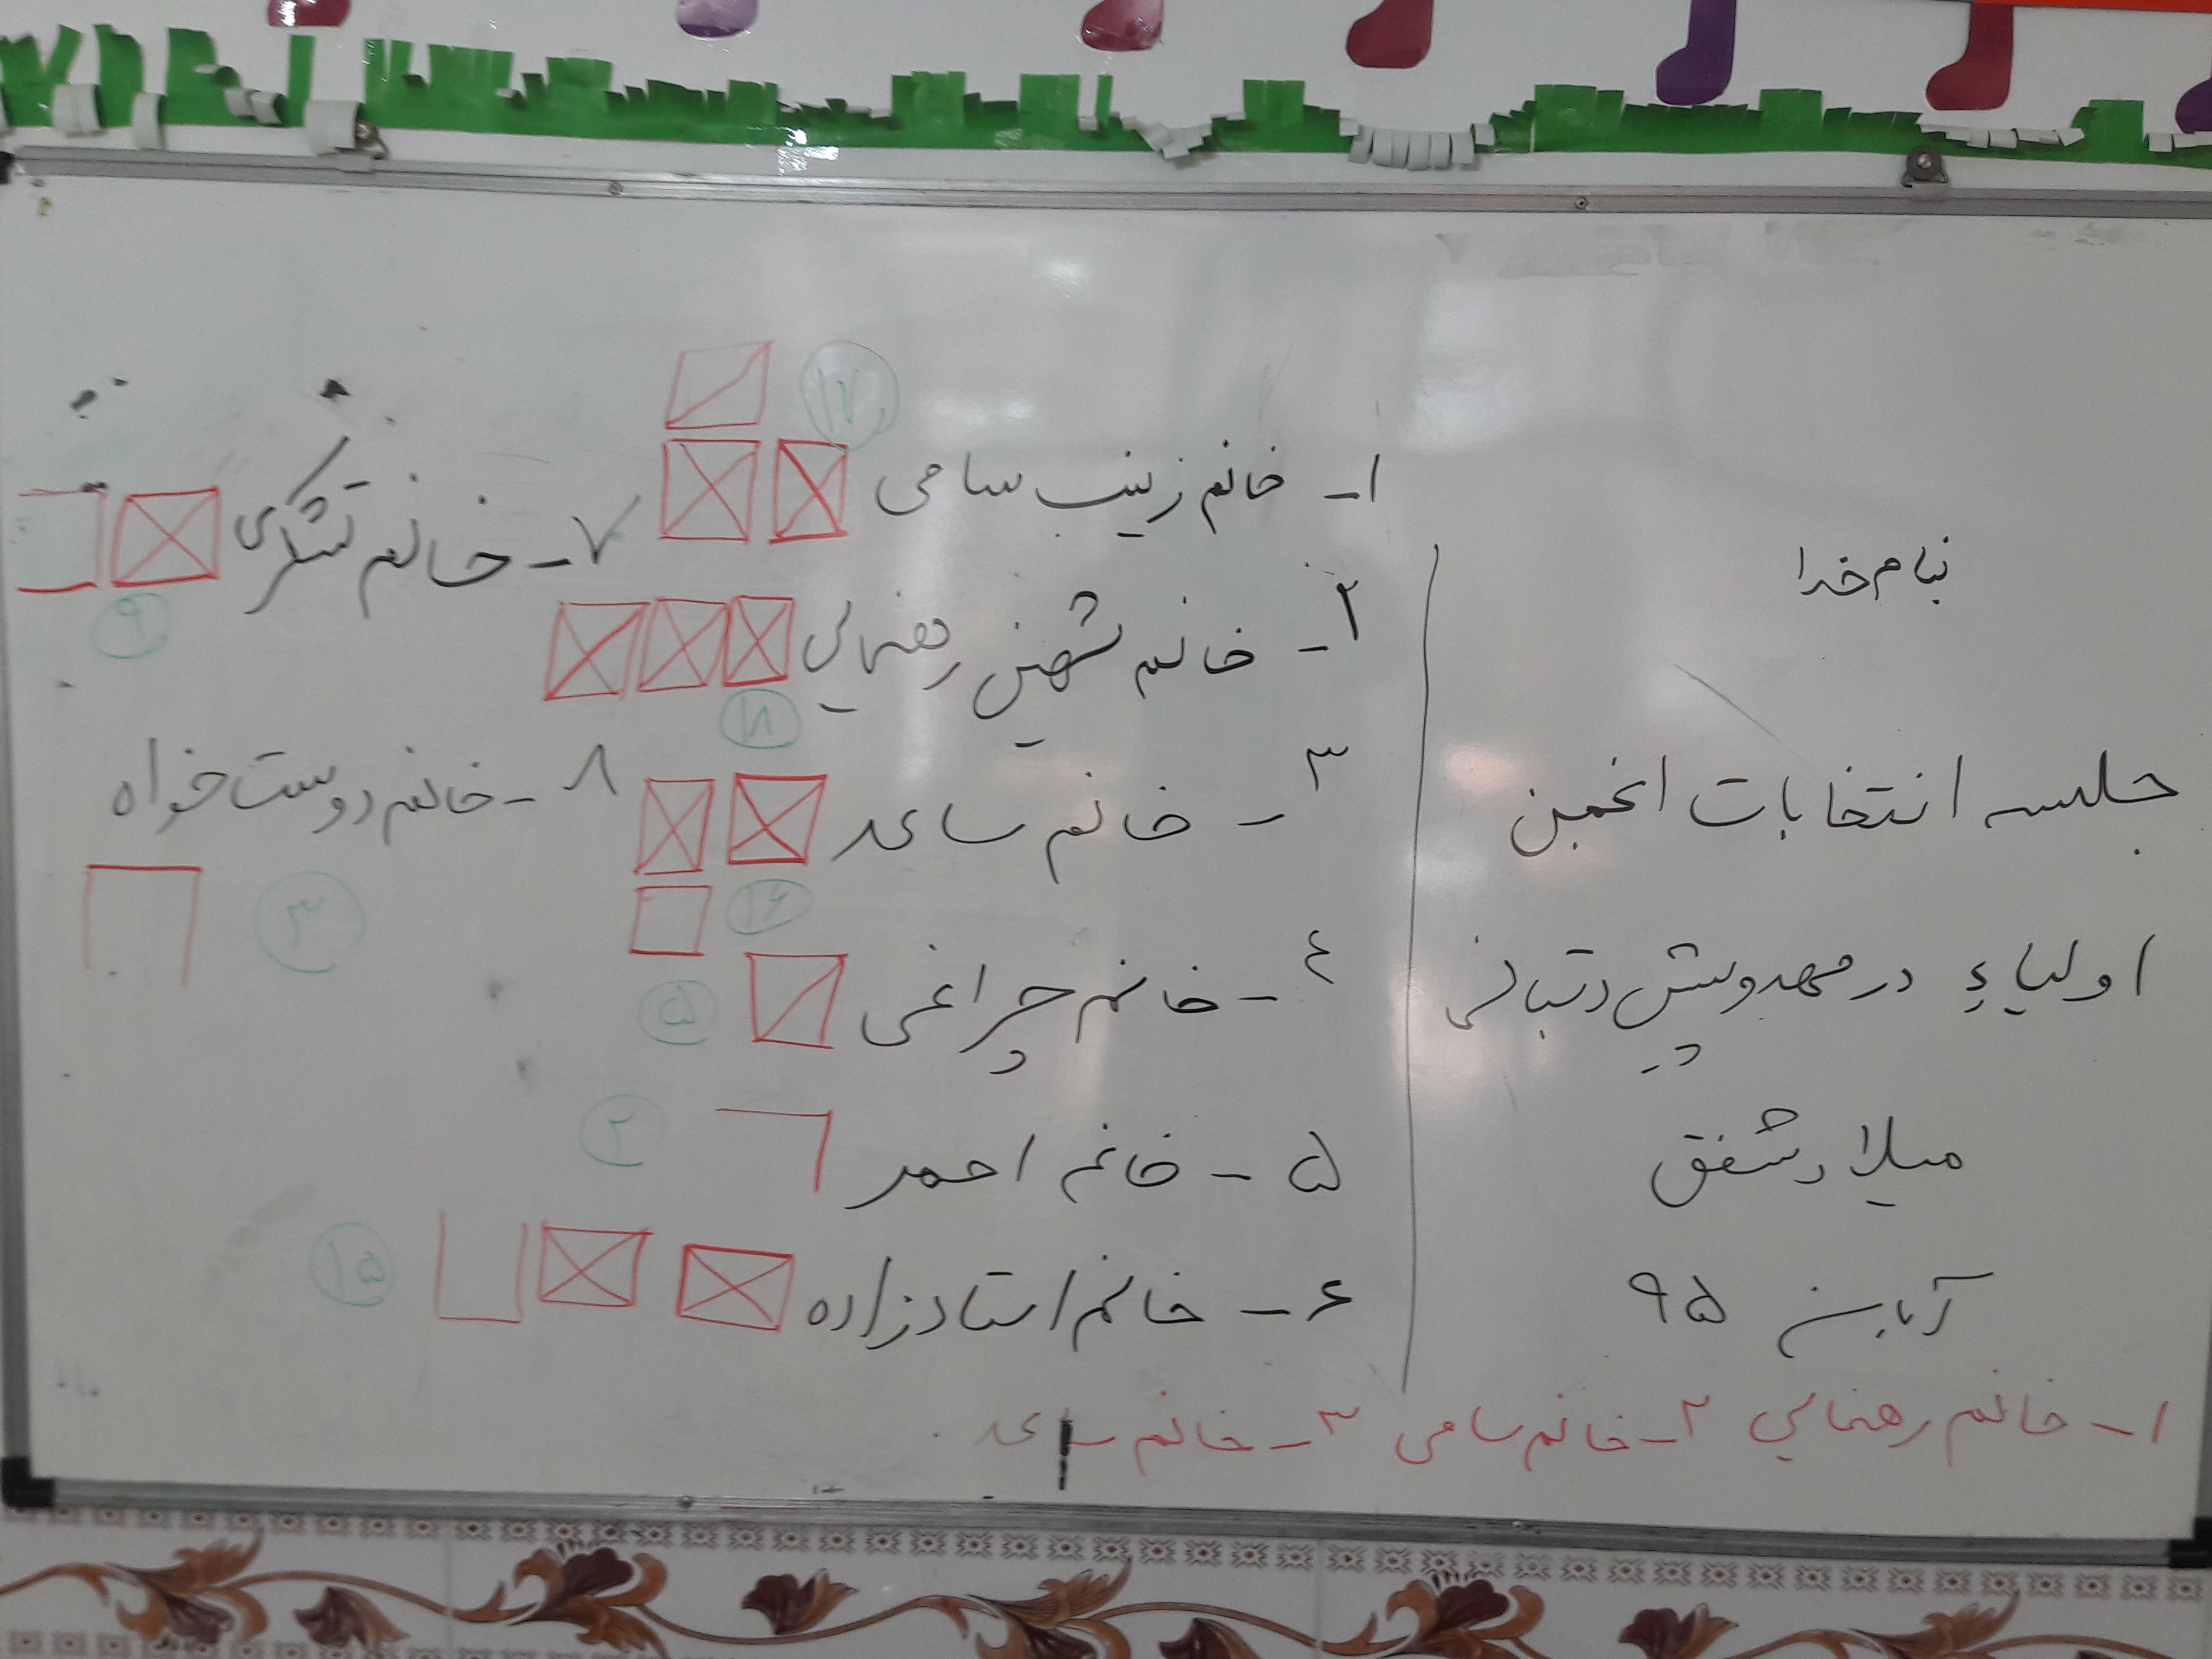 بنام خدا
جلسه انتخابات انجمن
اولیاء در مهد و پیش دبستانی
میلاد شفق
آبان ۹۵
۱- خانم زینب سامی
۱۷
۲- خانم شهین رهنمایی
۱۸
۳- خانم ساعد
۱۶
۴- خانم چراغی
۵
۵- خانم احمد
۲
۶- خانم استادزاده
۱۵
۷- خانم تشکری
۹
۸- خانم دوست خواه
۳
۱- خانم رهنمایی ۲- خانم سامی ۳- خانم ساعد